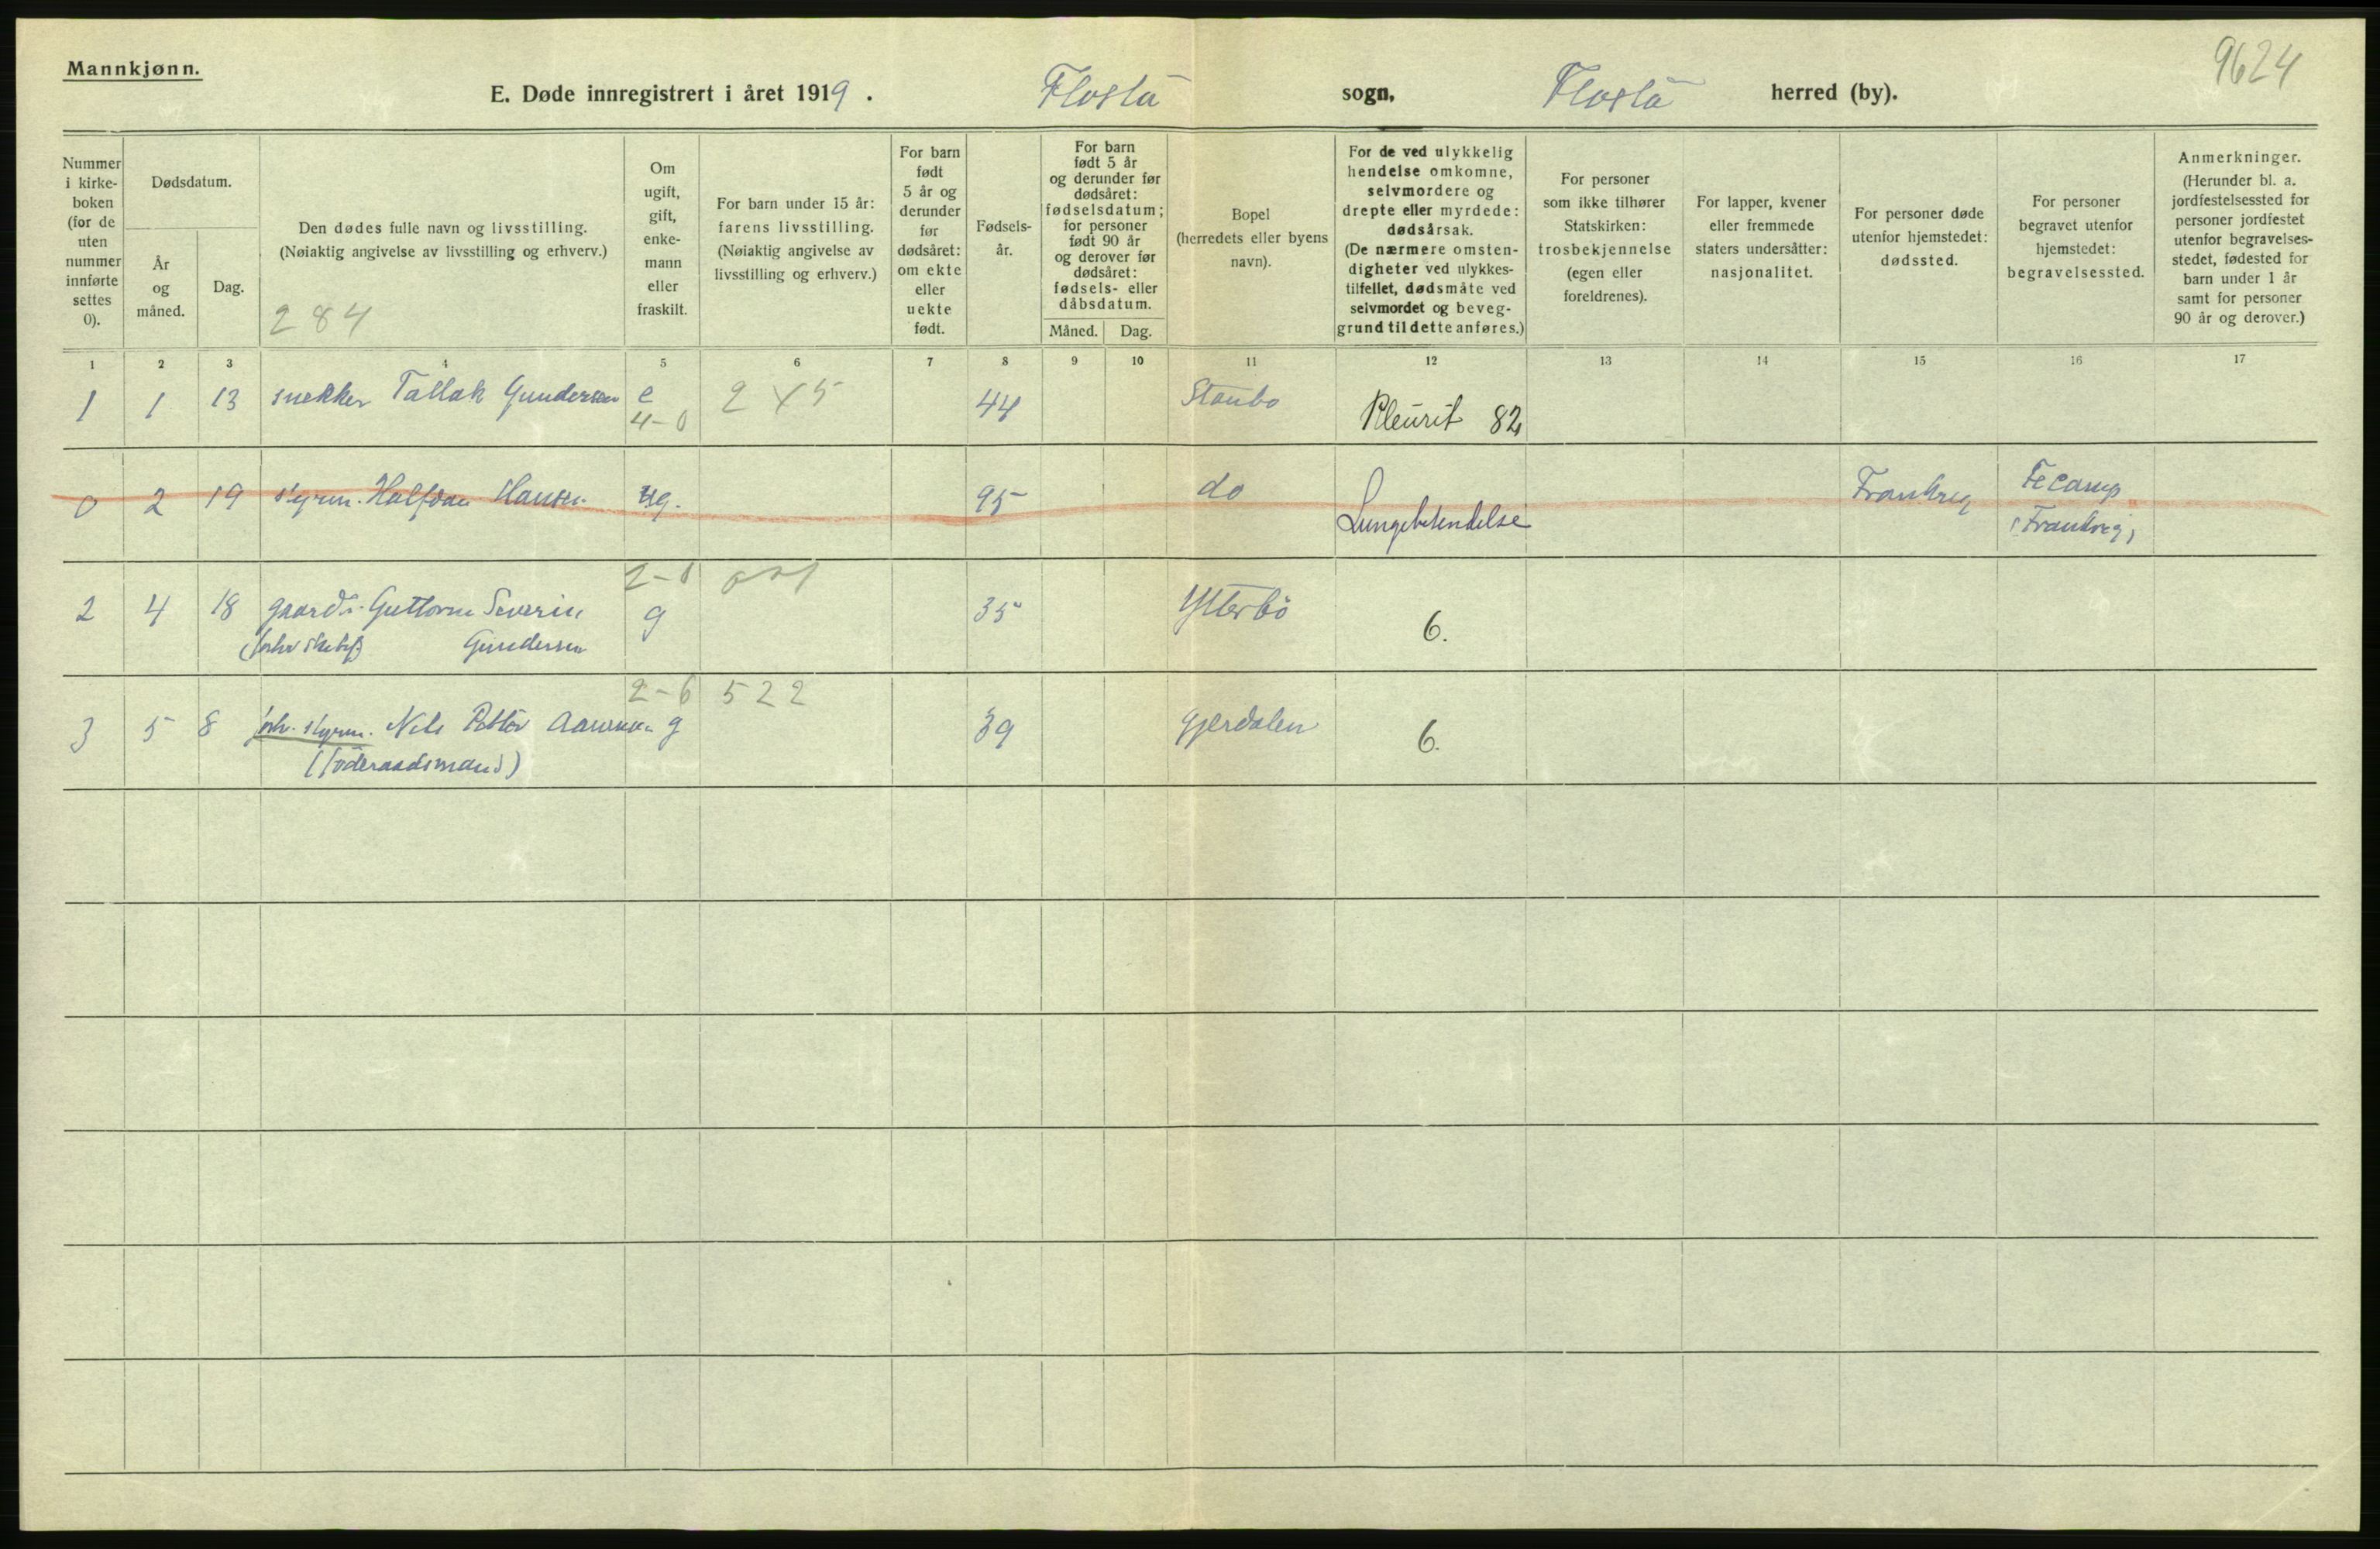 Mannkjønn.
9624
E. Døde innregistrert i året 1919. Flosta sogn, Flosta herred (by).
Nummer i kirke- boken (for de uten nummer innførte settes 0).
Dødsdatum.
År og måned.
Dag.
Den dødes fulle navn og livsstilling.
(Nøiaktig angivelse av livsstilling og erhverv.)
284
Om ugift, gift, enke- mann eller fraskilt.
For barn under 15 år: farens livsstilling. (Nøiaktig angivelse av livsstilling og erhverv.)
For barn født 5 år og derunder før dødsåret: om ekte eller uekte født.
Fødsels- år.
For barn født 5 år og derunder før dødsåret: fødselsdatum; for personer født 90 år og derover før dødsåret: fødsels- eller dåbsdatum.
Måned. Dag.
Bopel (herredets eller byens navn).
For de ved ulykkelig hendelse omkomne, selvmordere og drepte eller myrdede: dødsårsak. (De nærmere omsten- digheter ved ulykkes- tilfellet, dødsmåte ved selvmordet og beveg- grund til dette anføres.)
For personer som ikke tilhører Statskirken: trosbekjennelse (egen eller foreldrenes).
For lapper, kvener eller fremmede staters undersåtter: nasjonalitet.
For personer døde utenfor hjemstedet: dødssted.
For personer begravet utenfor hjemstedet: begravelsessted.
Anmerkninger. (Herunder bl. a. jordfestelsessted for personer jordfestet utenfor begravelses- stedet, fødested for barn under 1 år samt for personer 90 år og derover.)
1 2 3 4 5 6 7 8 9 10 11 12 13 14 15 16 17
1 1 13 snekker Tallak Gundersen e 2 x 5 44 Staubo Pleurit 82
4-0
0 2 19 styrm. Halfdan Hansen ug. 95 do Lungebetendelse Frankrig Fecamp
(Frankrig)
2-0
2 4 18 gaardb. Guttorm Severin g 35 Ytterbö 6.
Gundersen
2-6 522
3 5 8 forh. styrm. Nils Petter Aanonsen g 39 Gjerdalen 6.
(Föderaadsmand)